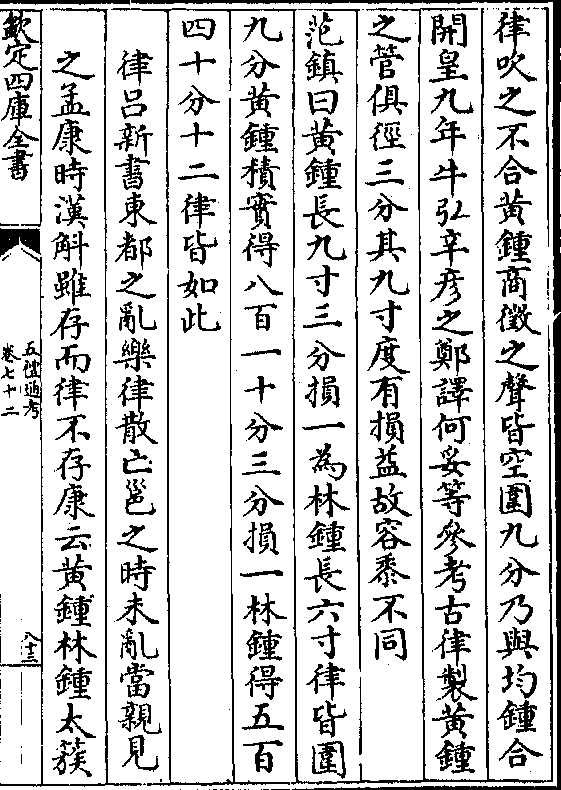 律吹之不合黃鍾商徵之聲皆空圍九分乃與均鍾合
開皇九年牛弘辛彦之鄭譯何妥等參考古律製黃鍾
之管俱徑三分其九寸度有損益故容黍不同
范鎮曰黃鍾長九寸三分損一為林鍾長六寸律皆圍
九分黃鍾積實得八百一十分三分損一林鍾得五百
四十分十二律皆如此
律呂新書東都之亂樂律散亡邕之時未亂當親見
之孟康時漢斛雖存而律不存康云黃鍾林鍾太簇
欽定四庫全書
五禮通考
卷七十二
八十三